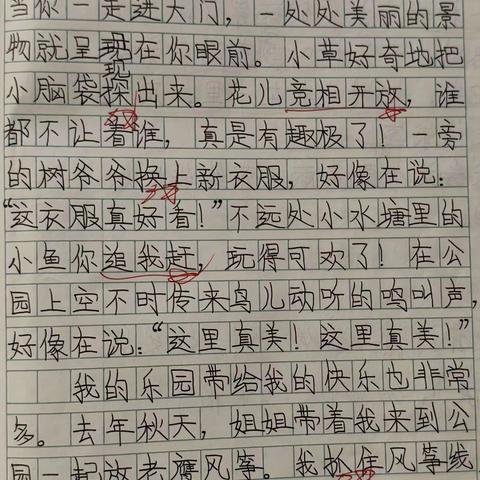 当你一走进大门，一处处美丽的景
物就呈现在你眼前。小草好奇地把
小脑袋探出来。花儿竞相开放，谁
都不让着谁，真是有趣极了！一旁
的树爷爷换上新衣服，好像在说：
“这衣服真好看！”不远处小水塘里的
小鱼你追我赶，玩得可欢了！在公
园上空不时传来鸟儿动听的鸣叫声，
好像在说：“这里真美！这里真美！”
我的乐园带给我的快乐也非常
多。去年秋天，姐姐带着我来到公
园一起放老鹰风筝。我抓住风筝线